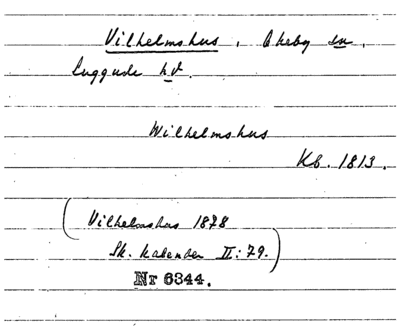 Vilhelmshus, Ekeby sn,
Luggude hd.
Wilhelmshus
Kb. 1813.
(Vilhelmshus 1878
Sk. Kalender II: 79.)
Nr 6344.